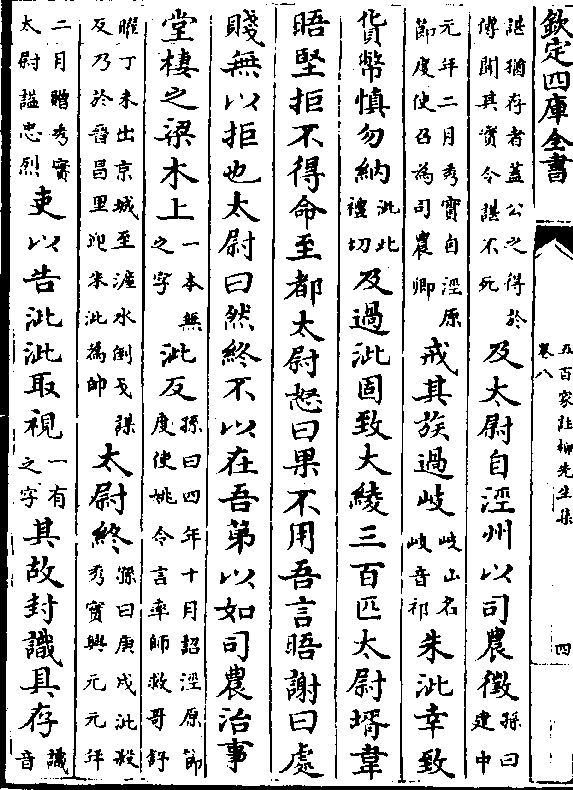 欽定四庫全書
五百家註柳先生集
卷八
四
諶猶存者蓋公之得於傳聞其實令諶不死及太尉自涇州以司農徵孫曰建中
元年二月秀實自涇原節度使召為司農卿戒其族過岐岐山名岐音祁朱泚幸致
貨幣慎勿納泚此禮切及過泚固致大綾三百匹太尉壻韋
晤堅拒不得命至都太尉怒曰果不用吾言晤謝曰處
賤無以拒也太尉曰然終不以在吾第以如司農治事
堂棲之梁木上一本無之字泚反孫曰四年十月詔涇原節度使姚令言率師救哥舒
曜丁未出京城至滻水倒戈謀反乃於晉昌里迎朱泚為帥太尉終孫曰庚戌泚殺秀實興元元年
二月贈秀實太尉謚忠烈吏以告泚泚取視一有之字其故封識具存識音